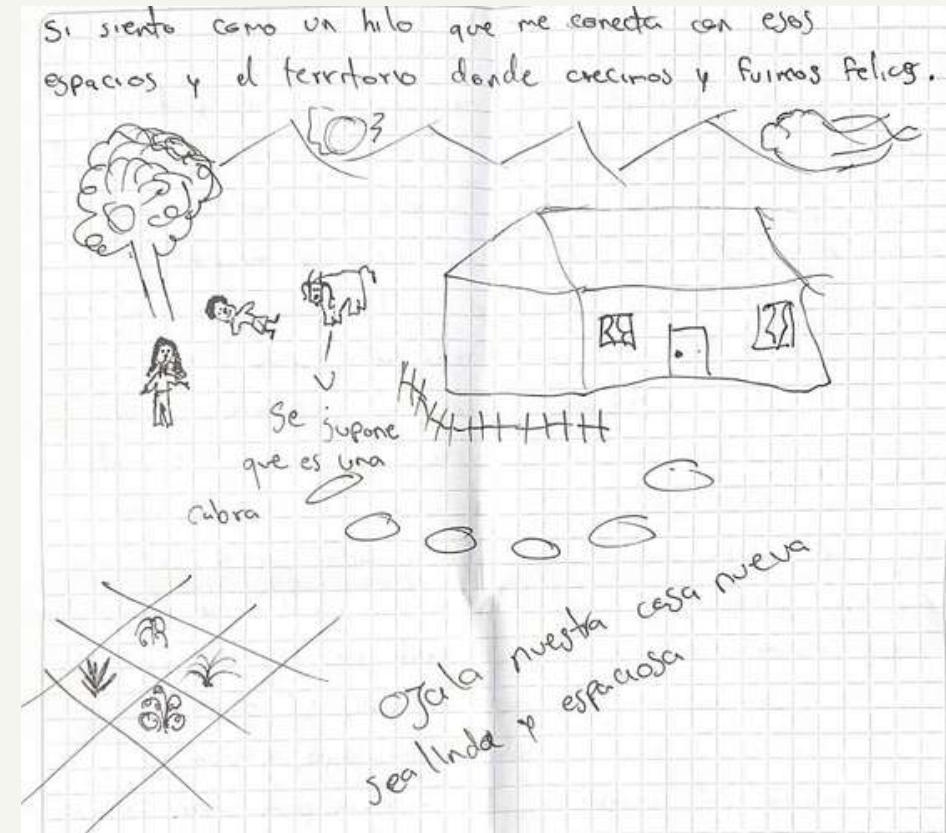 Si siento como un hilo que me conecta con esos
espacios y el territorio donde crecimos y fuimos felices.
Se supone
que es una
cabra
Ojala nuestra casa nueva
sea linda y espaciosa